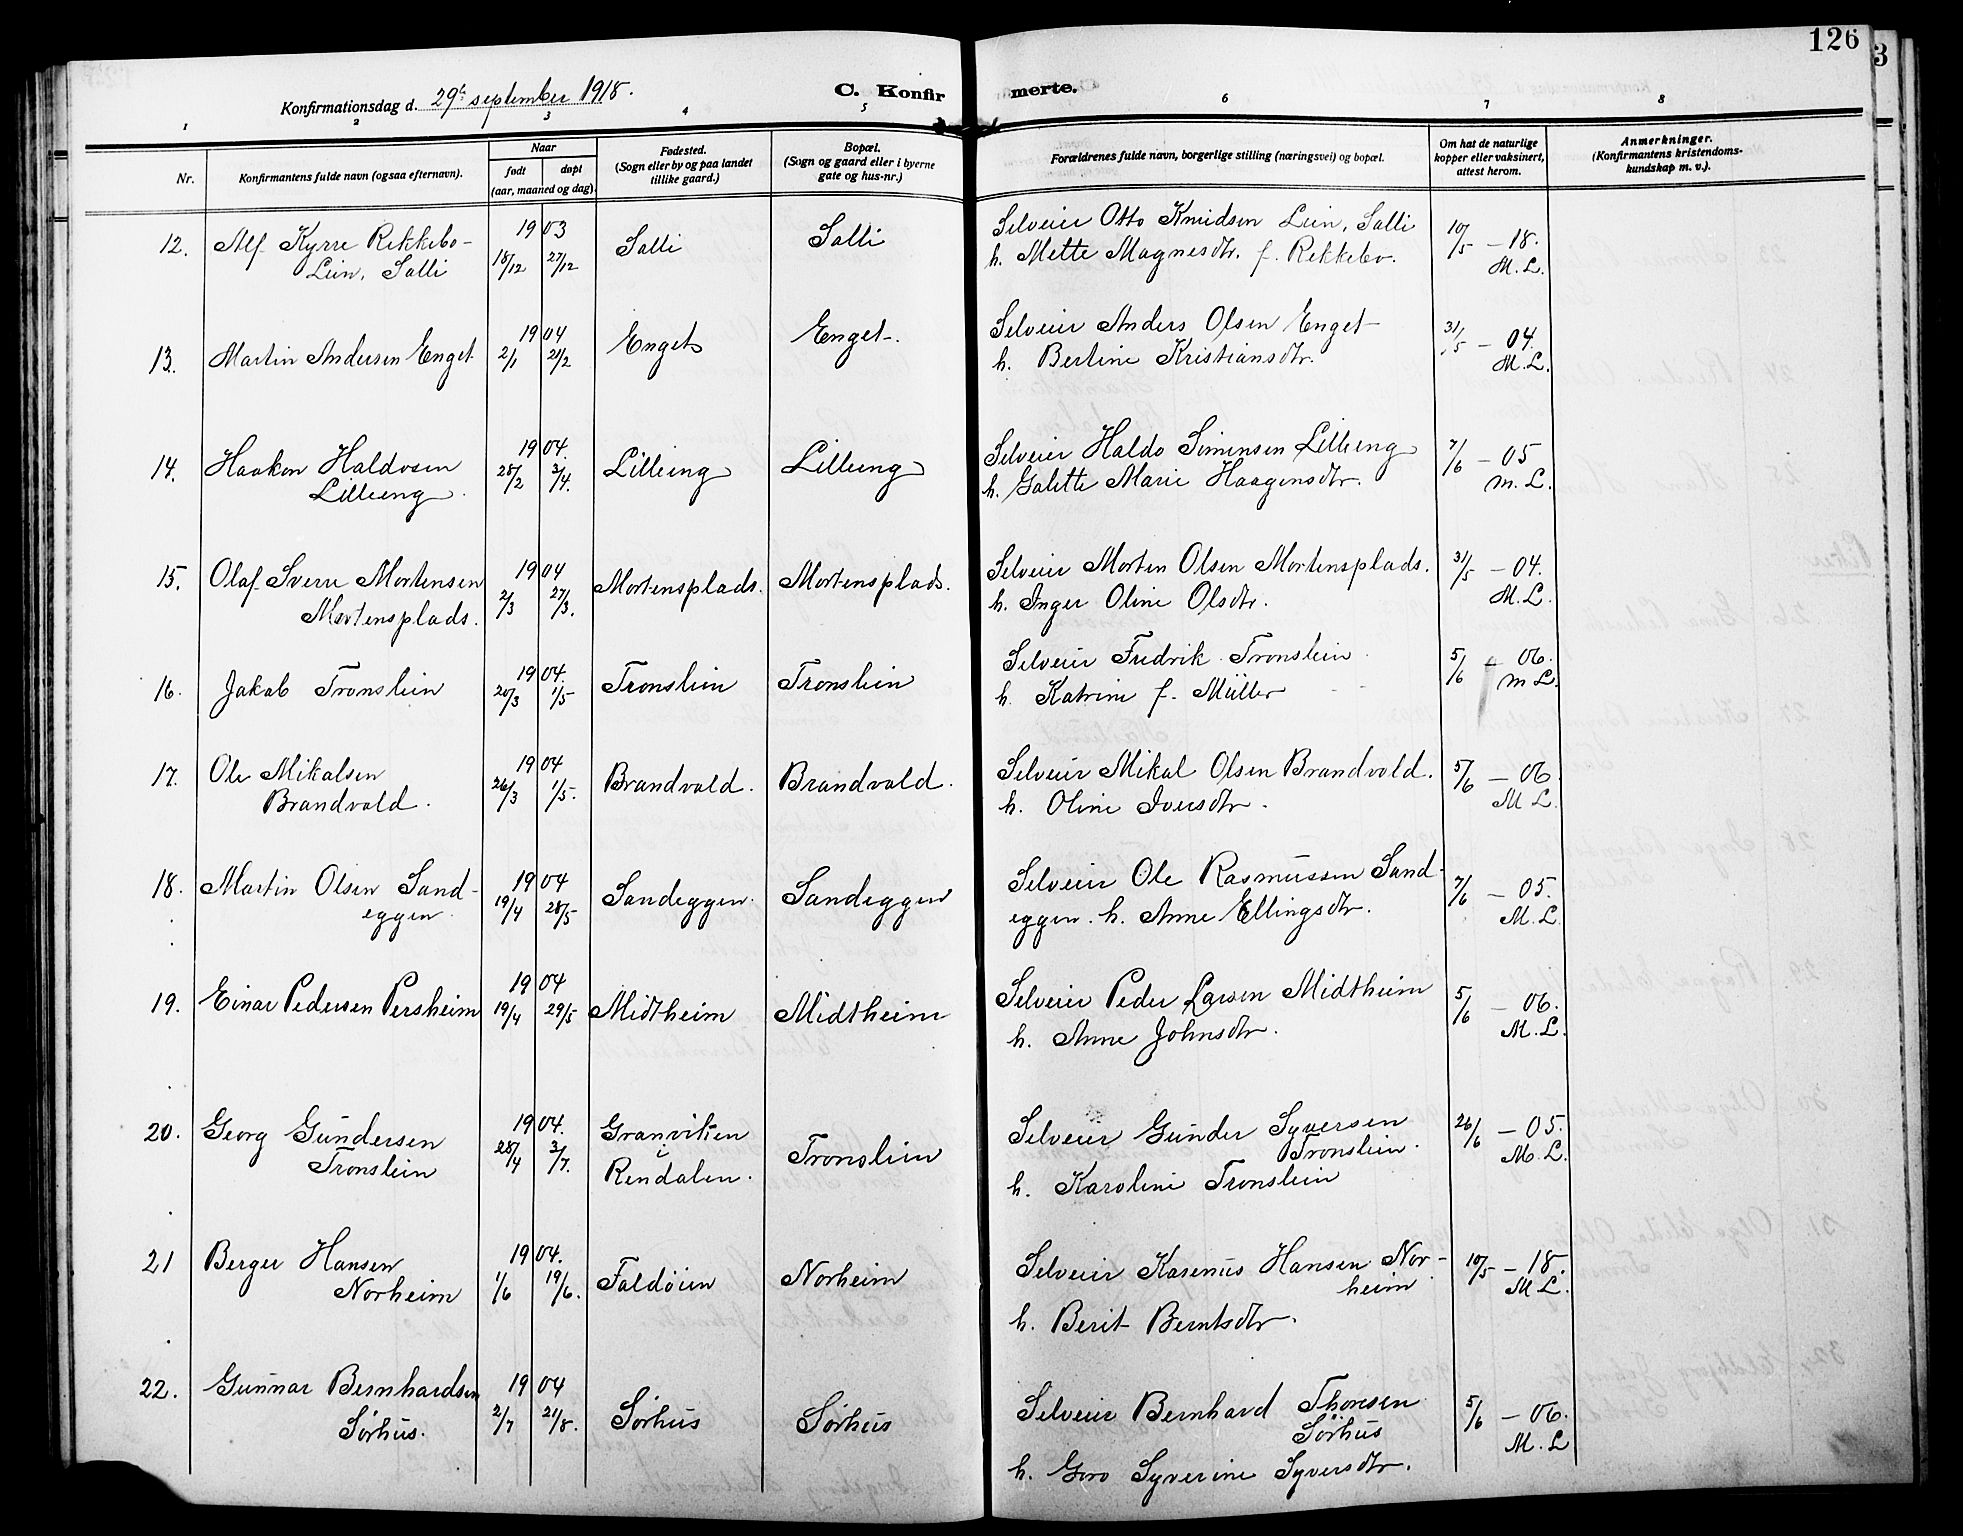 126
3
Konfirmationsdag d. 29de september 1918.
C. Konfirmerte.
1 2 3 4 5 6 7 8
Nr.
Konfirmantens fulde navn (ogsaa efternavn).
Naar
født
døpt
(aar, maaned og dag).
Fødested.
(Sogn eller by og paa landet
tillike gaard.)
Bopæl.
(Sogn og gaard eller i byerne
gate og hus-nr.)
Forældrenes fulde navn, borgerlige stilling (næringsvei) og bopæl.
Om hat de naturlige
kopper eller vaksinert,
attest herom.
Anmerkninger.
(Konfirmantens kristendoms-
kundskap m. v.).
12. Alf Kyrre Rekkebo-
Lien, Solli
1903
18/12 27/12
Solli
Solli
Selveier Otto Knudsen Lien, Solli
h. Mette Magnesdtr. f. Rekkebo.
10/5 – 18.
M. L.
13. Martin Andersen Enget
1904
2/1 21/2
Enget
Enget.
Selveier Anders Olsen Enget
h. Bertine Kristiansdtr.
31/5 – 04.
M. L.
14. Haakon Haldosen
Lilleeng.
1904.
28/2 3/4.
Lilleeng
Lilleeng
Selveier Haldo Simensen Lilleeng
h. Galette Marie Haagensdtr.
7/6 – 05
M. L.
15. Olaf Sverre Mortensen
Mortensplads.
1904
2/3 27/3.
Mortensplads.
Mortensplads.
Selveier Morten Olsen Mortensplads.
h. Inger Oline Olsdtr.
31/5 – 04.
M. L.
16. Jakob Tronslien
1904.
20/3 1/5
Tronslien
Tronslien
Selveier Fredrik Tronslien
h. Katrine f. Müller
5/6 – 06.
M L.
17. Ole Mikalsen
Brandvold.
1904
26/3 1/5.
Brandvold.
Brandvold.
Selveier Mikal Olsen Brandvold.
h. Oline Iversdtr.
5/6 – 06.
M L.
18. Martin Olsen Sand-
eggen.
1904
19/4 28/5
Sandeggen.
Sandeggen
Selveier Ole Rasmussen Sand-
eggen. h. Anne Ellingsdtr.
7/6 – 05.
M. L.
19. Einar Pedersen Persheim
1904
19/4 29/5
Midtheim
Midtheim
Selveier Peder Larsen Midtheim
h. Anne Johnsdtr.
5/6 – 06.
M. L.
20. Georg Gundersen
Tronslien
1904.
28/4 3/7.
Granviken
i
Rendalen.
Tronslien
Selveier Gunder Syversen
Tronslien.
h. Karoline Tronslien
26/6 – 05.
M. L.
21 Berger Hansen
Norheim
1904.
1/6 19/6.
Faldöien
Norheim
Selveier Karenus Hansen Nor-
heim
h. Berit Berntsdtr.
10/5 – 18.
M L.
22. Gunnar Bernhardsen
Sørhus.
1904
2/7 21/8.
Sørhus
Sørhus
Selveier Bernhard Thoresen
Sørhus
h. Goro Syverine Syversdtr.
5/6 – 06.
M. L